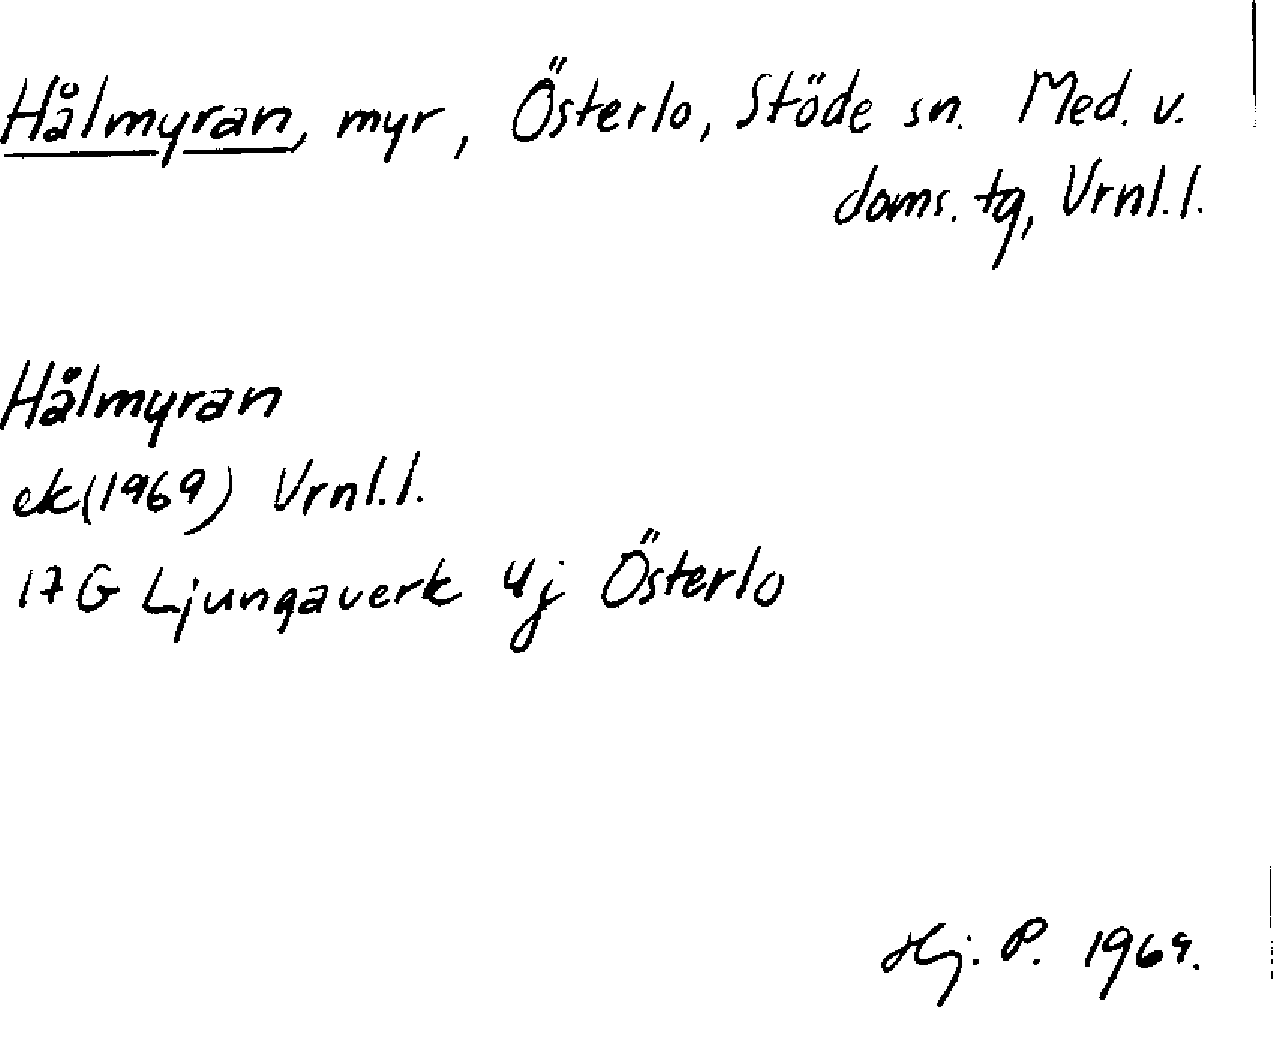 Hålmyran, myr, Österlo, Stöde sn. Med. v.
doms. tg, Vrnl.l.
Hålmyran
ek(1969) Vrnl.l.
17 G Ljungaverk 4j Österlo
Hj. P. 1969.